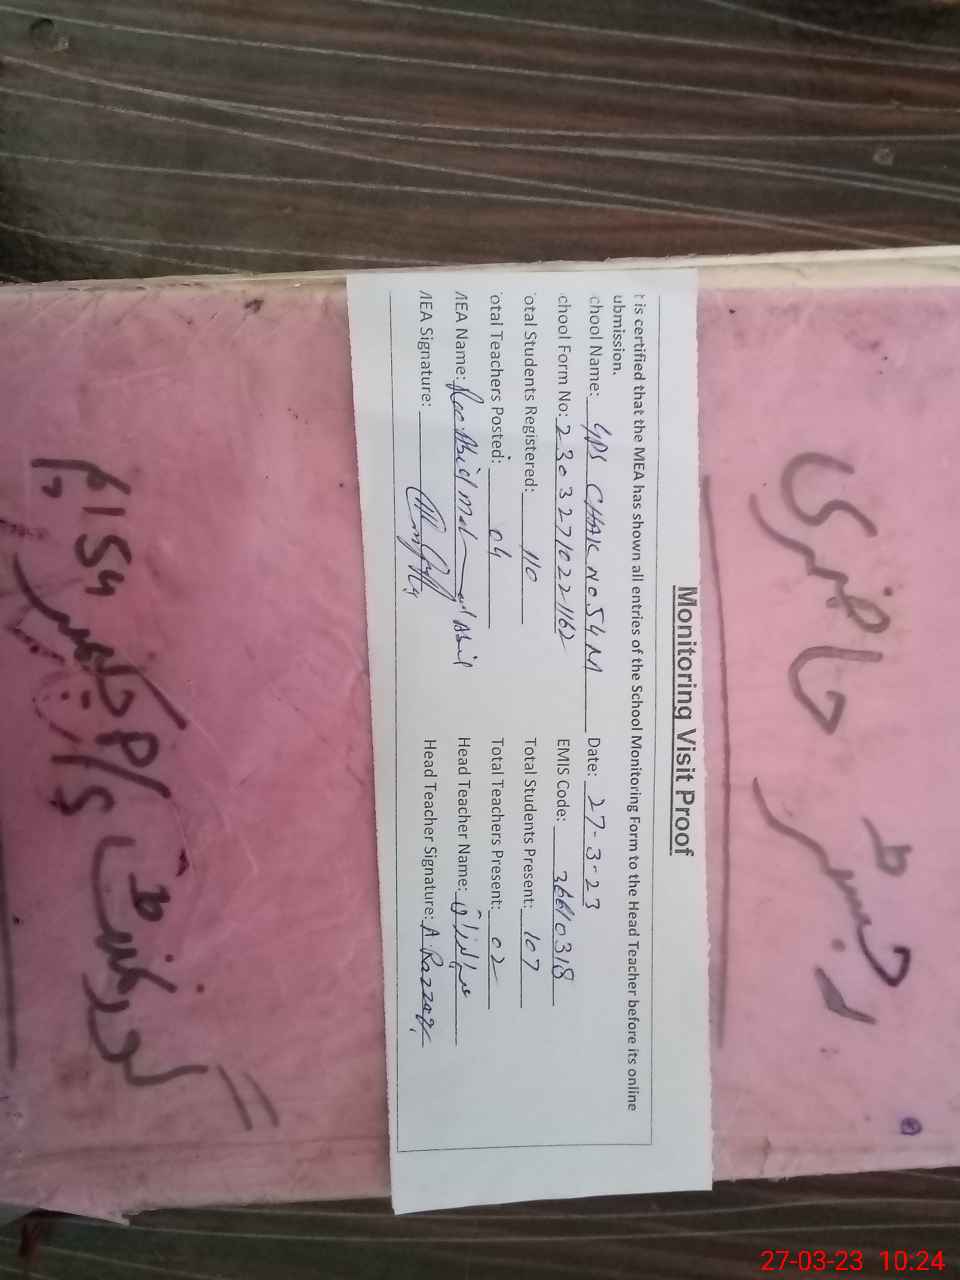 رجسٹر حاضری
Monitoring Visit Proof
t is certified that the MEA has shown all entries of the School Monitoring Form to the Head Teacher before its online
ubmission.
chool Name: GPS CHAK NO 54 M Date: 27-3-23
chool Form No: 23032710221162 EMIS Code: 36610318
otal Students Registered: 110 Total Students Present: 107
otal Teachers Posted: 04 Total Teachers Present: 02
MEA Name: Abid Head Teacher Name: عبدالرزاق
MEA Signature: Head Teacher Signature: A Razzaq
گورنمنٹ P/S چک نمبر 54 ایم
27-03-23 10:24